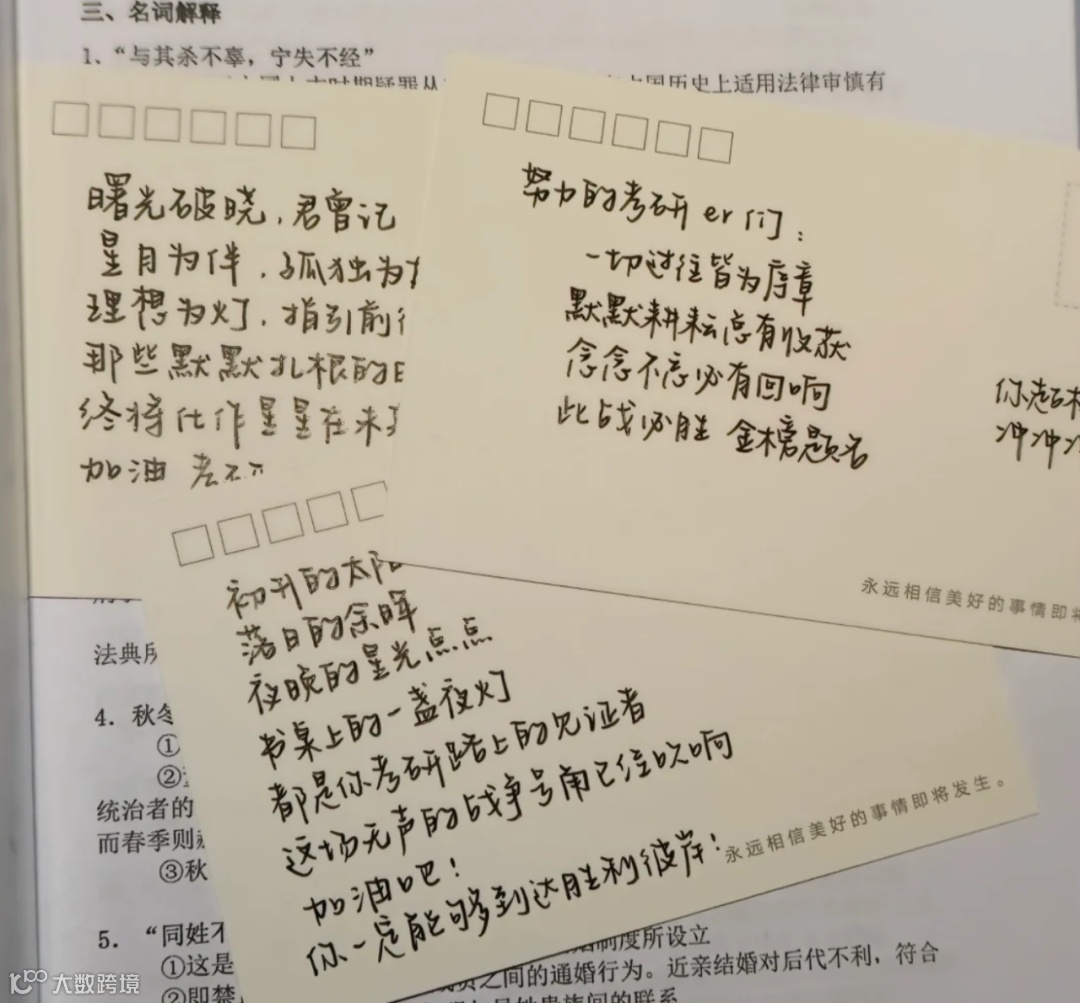 三、名词解释
1. “与其杀不辜，宁失不经”
国历史上适用法律审慎有
曙光破晓，君曾记
星月为伴，孤独为
理想为灯，指引前
那些默默扎根的日
终将化作星星在未
加油 考
努力的考研er们：
一切过往皆为序章
默默耕耘总有收获
念念不忘必有回响
此战必胜 金榜题名
你超棒
冲冲冲
永远相信美好的事情即将
初升的太阳
落日的余晖
夜晚的星光点点
书桌上的一盏夜灯
都是你考研路上的见证者
这场无声的战争号角已经吹响
加油吧！
你一定能够到达胜利彼岸！
永远相信美好的事情即将发生。
法典所
4. 秋冬
①
②
统治者的
而春季则
③秋
5. “同姓不
制度所设立
①这是
之间的通婚行为。近亲结婚对后代不利，符合
②即禁
大数跨境